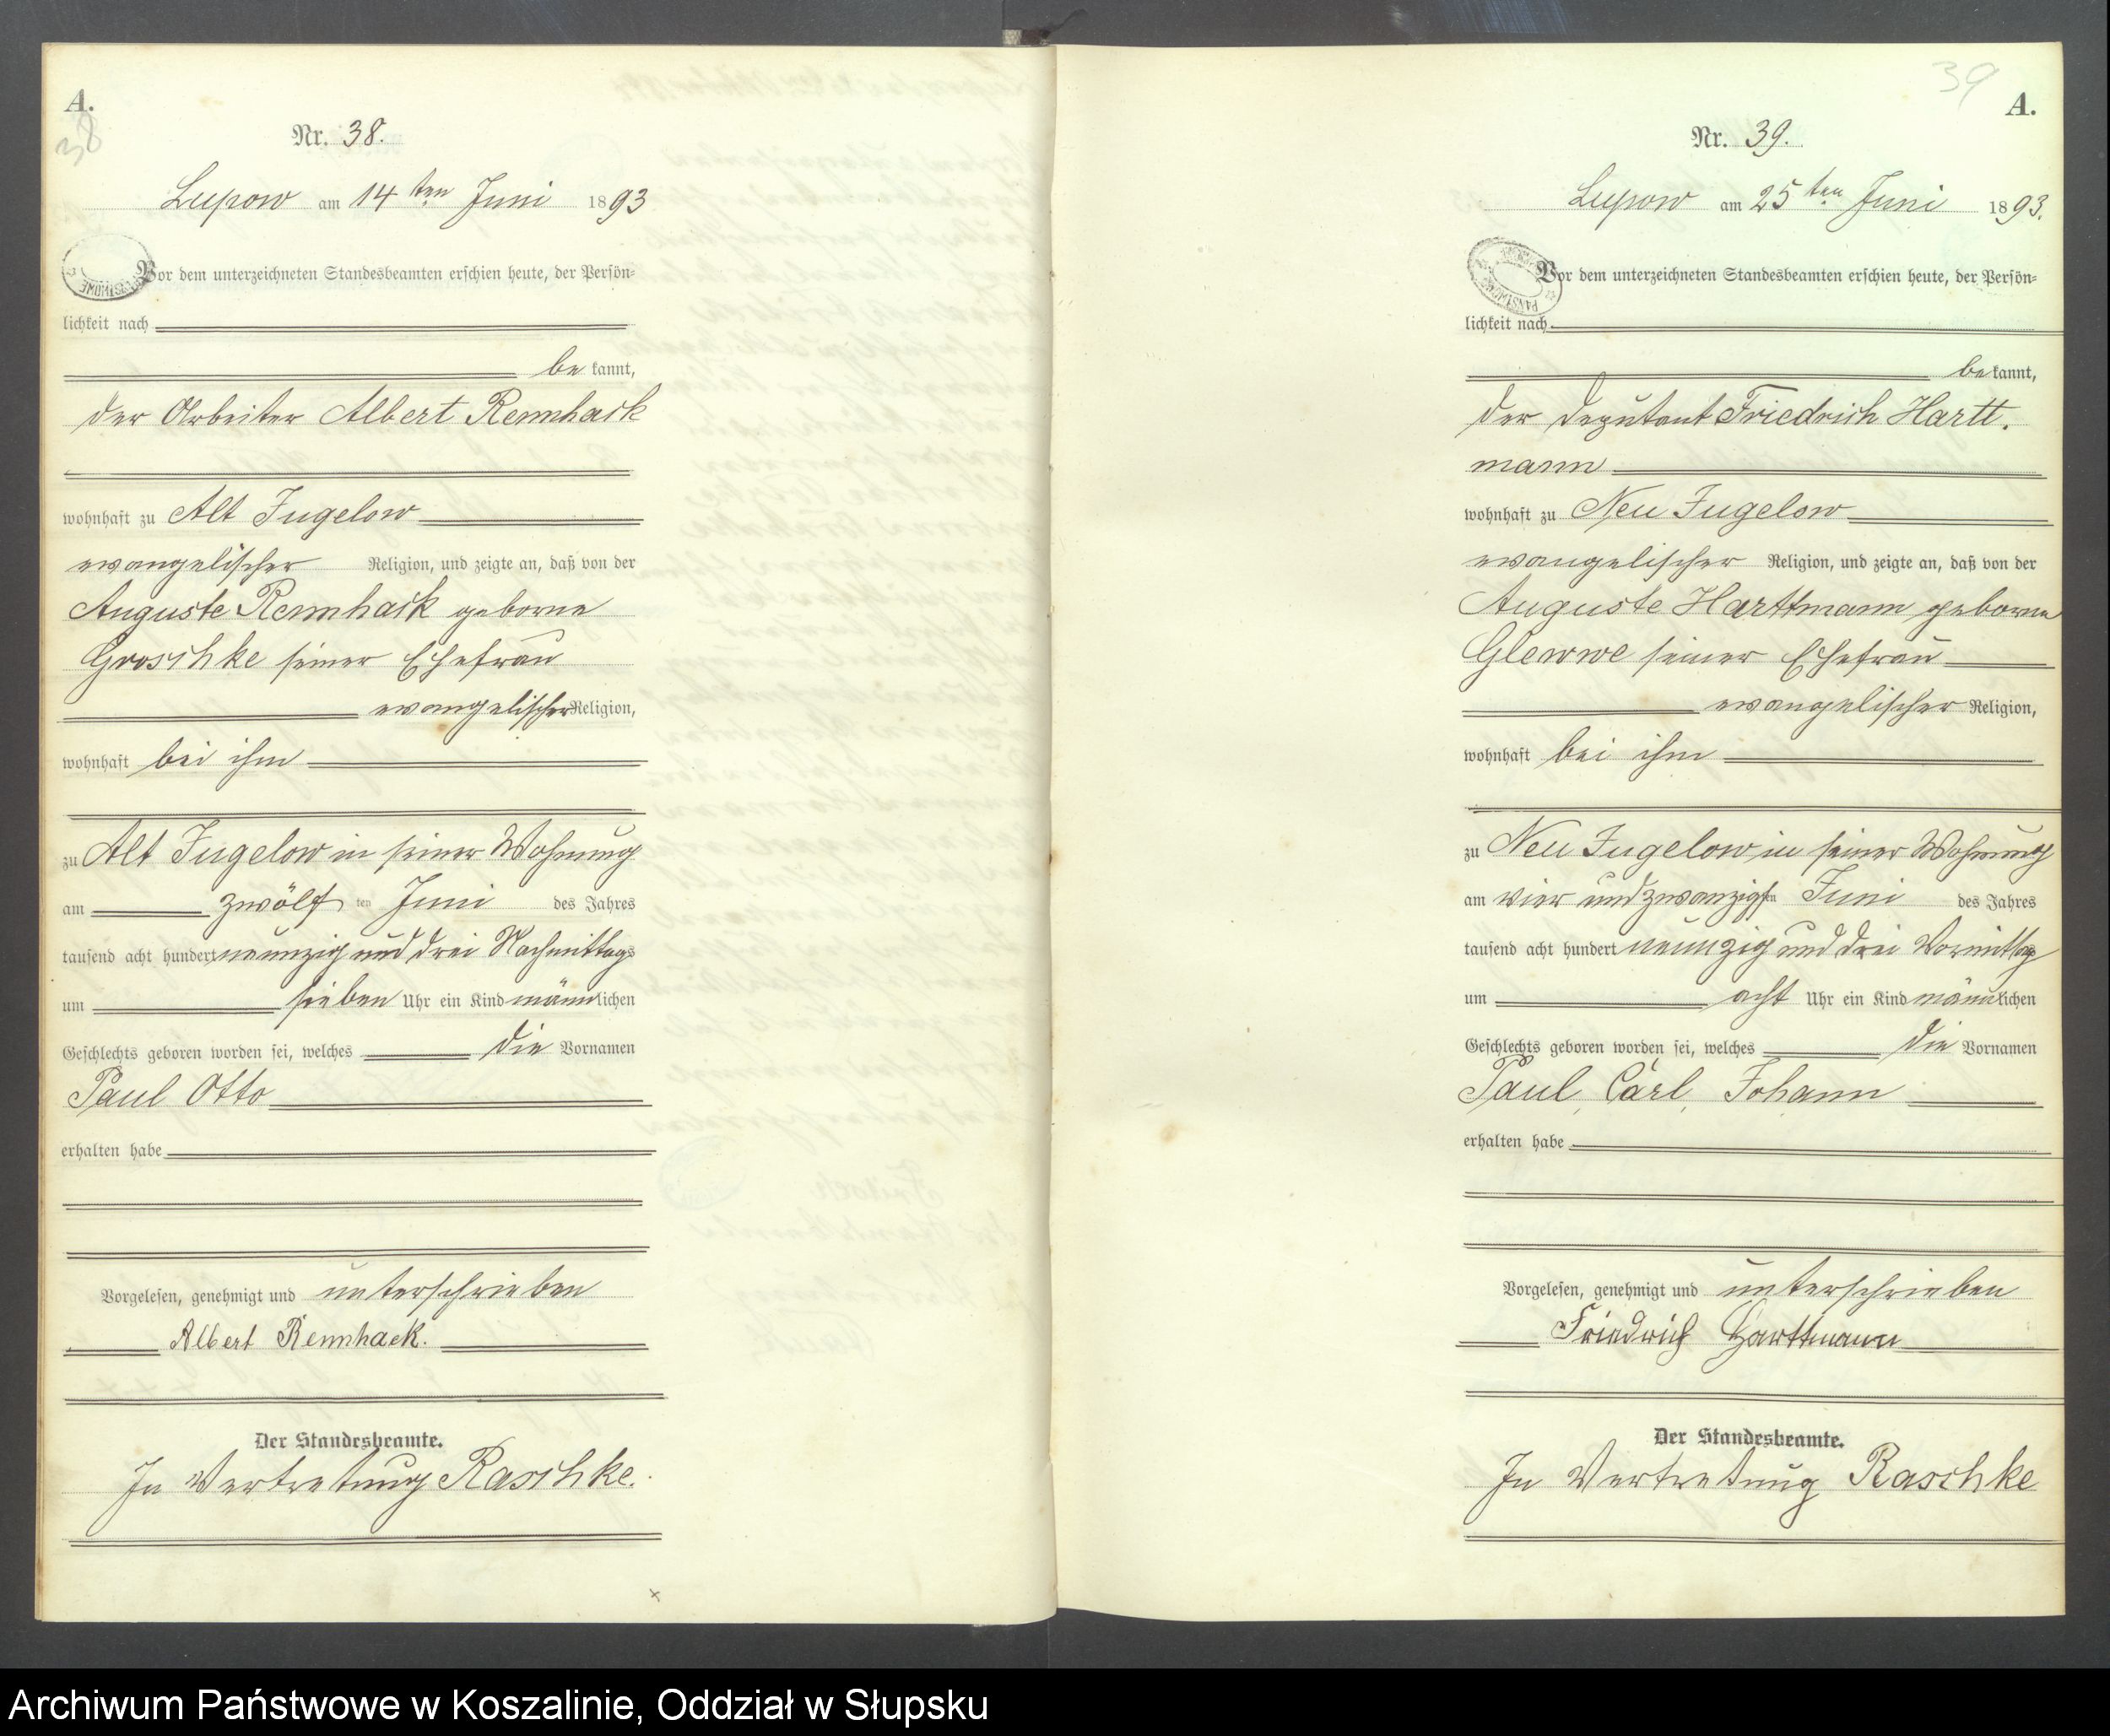 A.
38
Nr. 38.
Lupow am 14ten Juni 1893
Vor dem unterzeichneten Standesbeamten erschien heute, der Persön-
lichkeit nach
bekannt,
der Arbeiter Albert Rennhack
wohnhaft zu Alt Jugelow
evangelischer Religion, und zeigte an, daß von der
Auguste Rennhack geborne
Groschke seiner Ehefrau
evangelischer Religion,
wohnhaft bei ihm
zu Alt Jugelow in seiner Wohnung
am zwölf ten Juni des Jahres
tausend acht hundert neunzig und drei Nachmittags
um sieben Uhr ein Kind männlichen
Geschlechts geboren worden sei, welches die Vornamen
Paul Otto
erhalten habe
Vorgelesen, genehmigt und unterschrieben
Albert Rennhack.
Der Standesbeamte.
In Vertretung Raschke.
39
A.
Nr. 39.
Lupow am 25ten Juni 1893.
Vor dem unterzeichneten Standesbeamten erschien heute, der Persön-
lichkeit nach
bekannt,
der Deputant Friedrich Hartt.
mann
wohnhaft zu Neu Jugelow
evangelischer Religion, und zeigte an, daß von der
Auguste Harttmann geborne
Glewwe seiner Ehefrau
evangelischer Religion,
wohnhaft bei ihm
zu Neu Jugelow in seiner Wohnung
am vier und zwanzigsten Juni des Jahres
tausend acht hundert neunzig und drei Vormittags
um acht Uhr ein Kind männlichen
Geschlechts geboren worden sei, welches die Vornamen
Paul, Carl, Johann
erhalten habe
Vorgelesen, genehmigt und unterschrieben
Friedrich Harttmann
Der Standesbeamte.
In Vertretung Raschke
Archiwum Państwowe w Koszalinie, Oddział w Słupsku